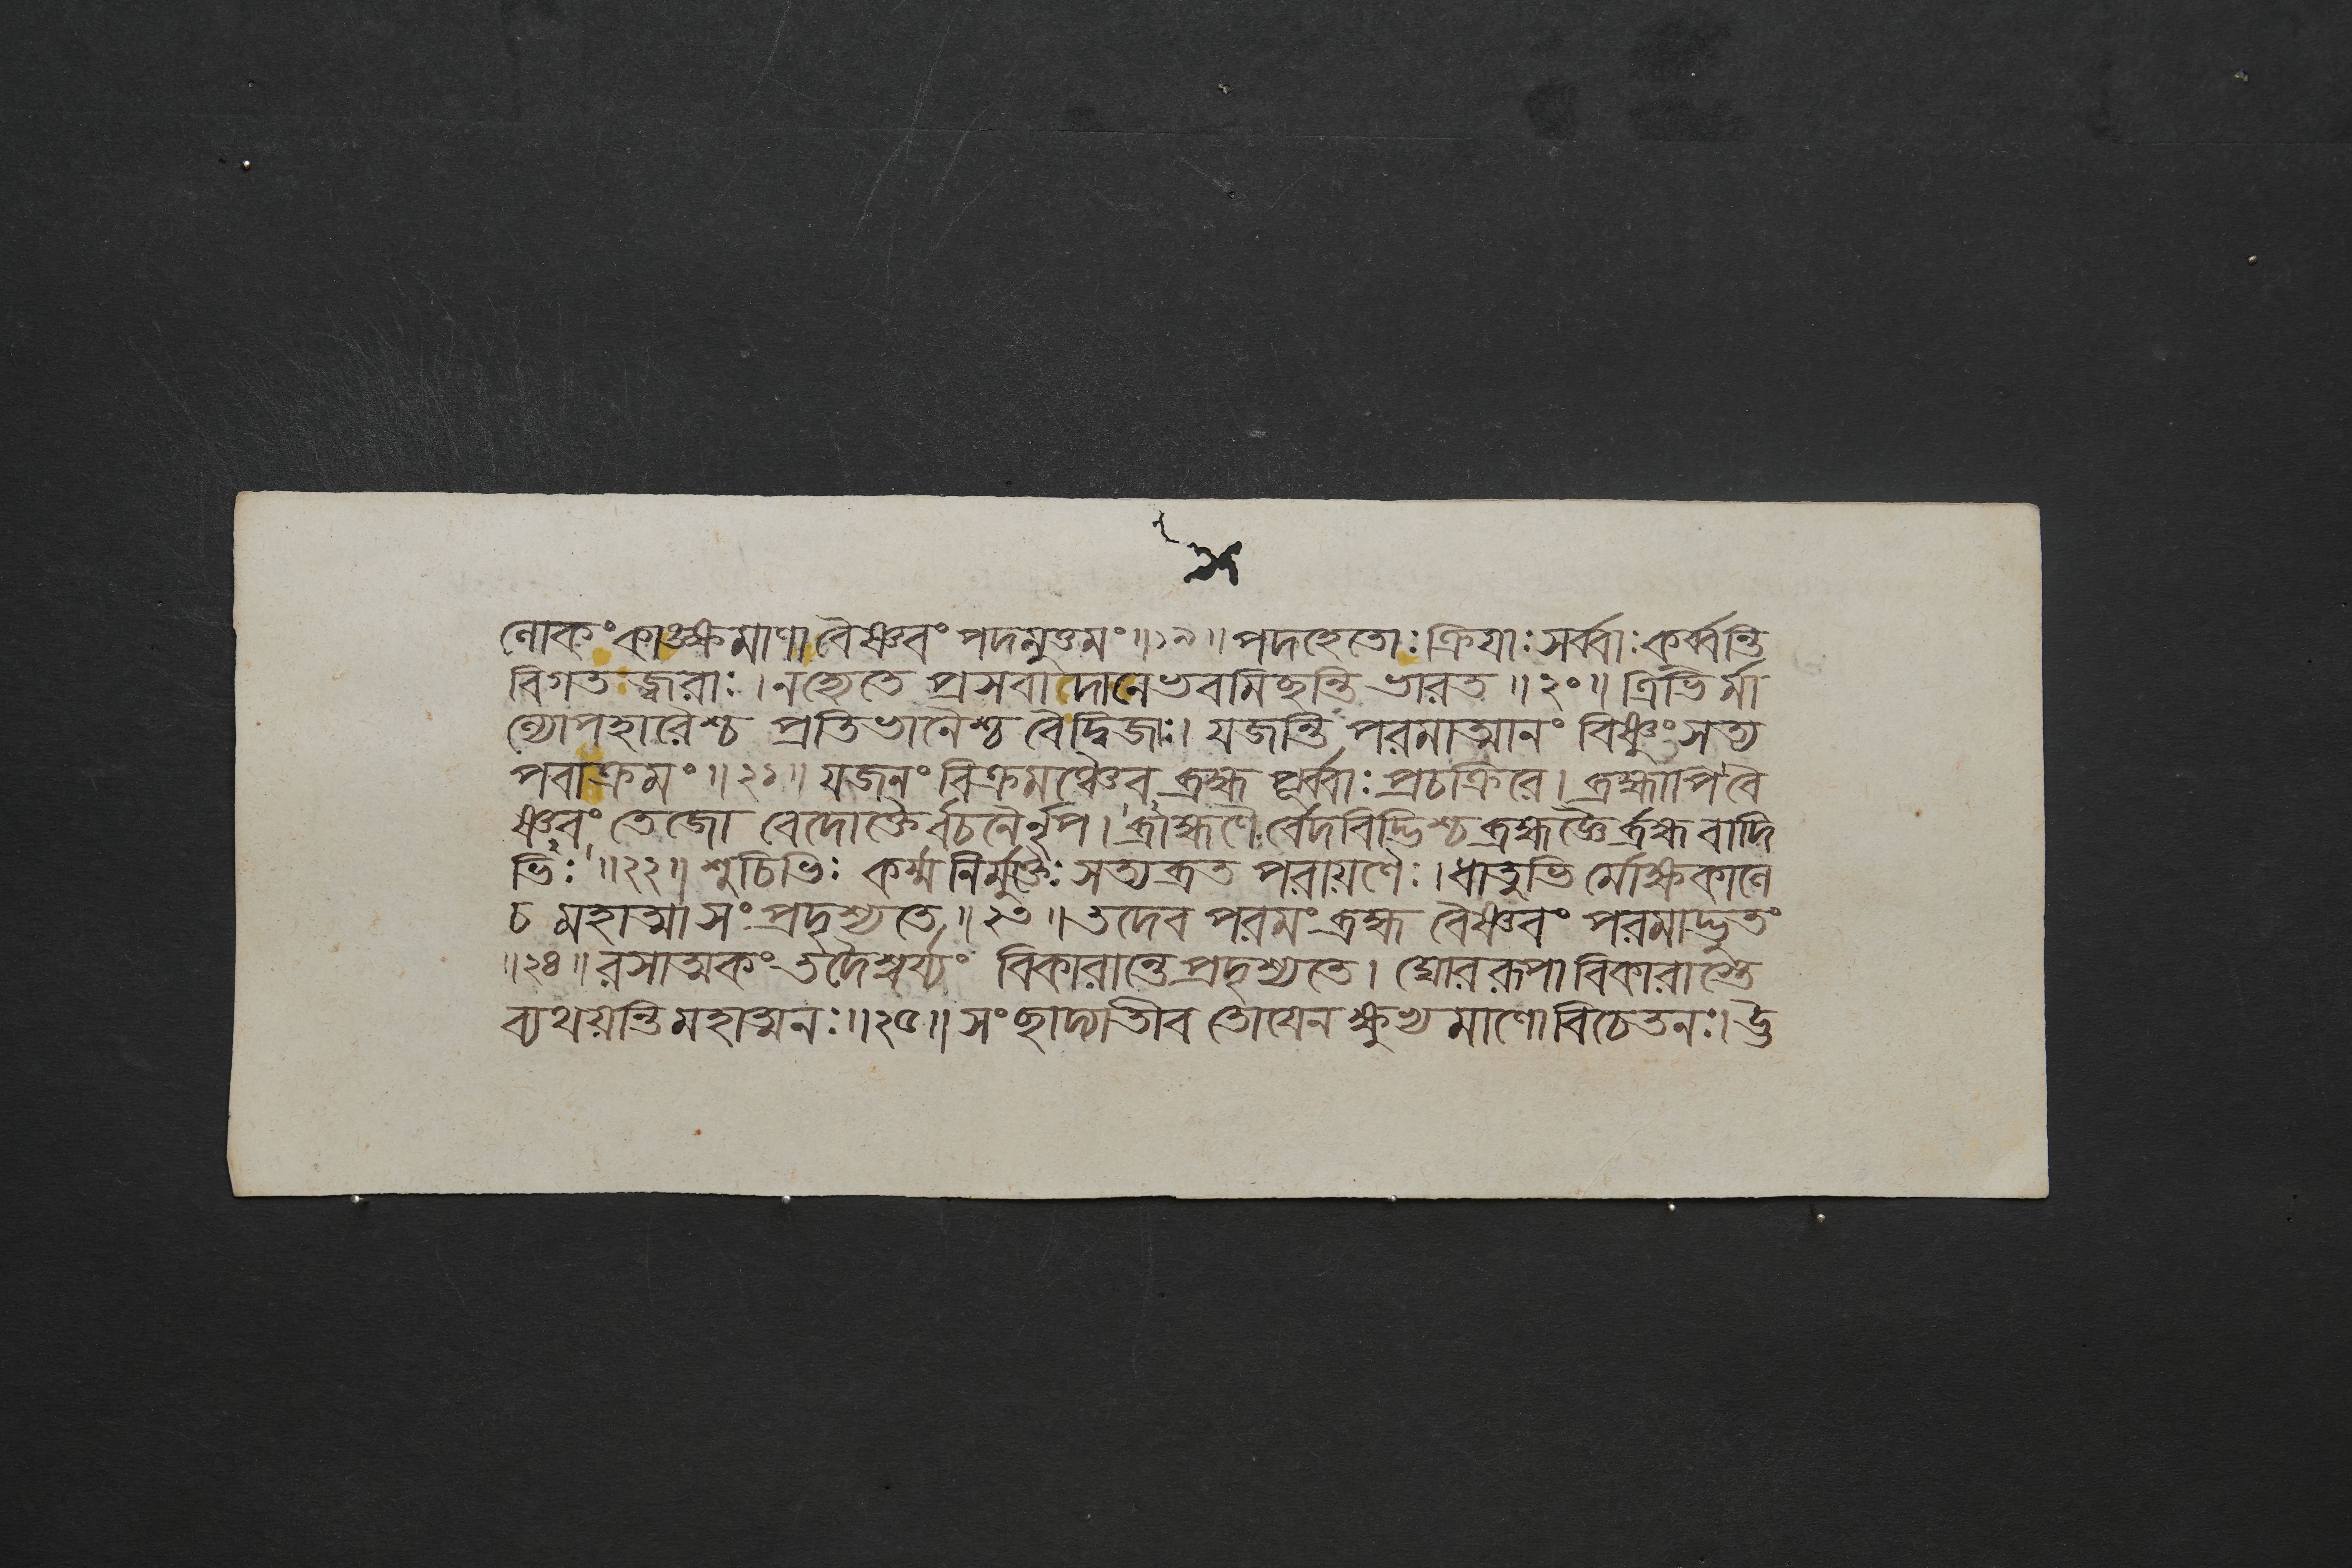 লোকং কাঙ্ক্ষমাণা বৈষ্ণবং পদমুত্তমং॥১৯॥পদহেতোঃ ক্রিয়াঃ সর্ব্বাঃ কুর্ব্বন্তি
বিগত জ্বরাঃ।নহ্যেতে প্রসবাদানে ভবমিছন্তি ভারত॥২০॥ত্রিভির্মা
ল্যোপহারৈশ্চ প্রতিভানৈশ্চ বৈদ্বিজাঃ। যজন্তি পরমাত্মানং বিষ্ণুং সত্য
পরাক্রমং॥২১॥যজনং বিক্রমঞ্চৈব ব্রহ্ম পূর্ব্বাঃ প্রচক্রিরে। ব্রহ্মাপি বৈ
ষ্ণবং তেজো বেদোক্তৈর্বচনৈর্নৃপ। ব্রাহ্মণৈর্বেদবিদ্ভিশ্চ ব্রহ্মজ্ঞৈর্ব্রহ্ম বাদি
ভিঃ॥২২॥শুচিভিঃ কর্ম্ম নির্মুক্তৈঃ সত্যব্রত পরায়ণৈঃ।ধাতুভির্মোক্ষকালে
চ মহাত্মা সংপ্রদৃশ্যতে॥২৩॥তদেব পরমং ব্রহ্ম বৈষ্ণবং পরমাদ্ভুতং
॥২৪॥রসাত্মকং তদৈশ্বর্য্যং বিকারান্তে প্রদৃশ্যতে। ঘোররূপা বিকারাস্তে
ব্যথয়ন্তি মহাত্মনঃ॥২৫॥সংছাদ্যাতীব তোযেন ক্ষুভ্য মাণো বিচেতনঃ। দ্রু